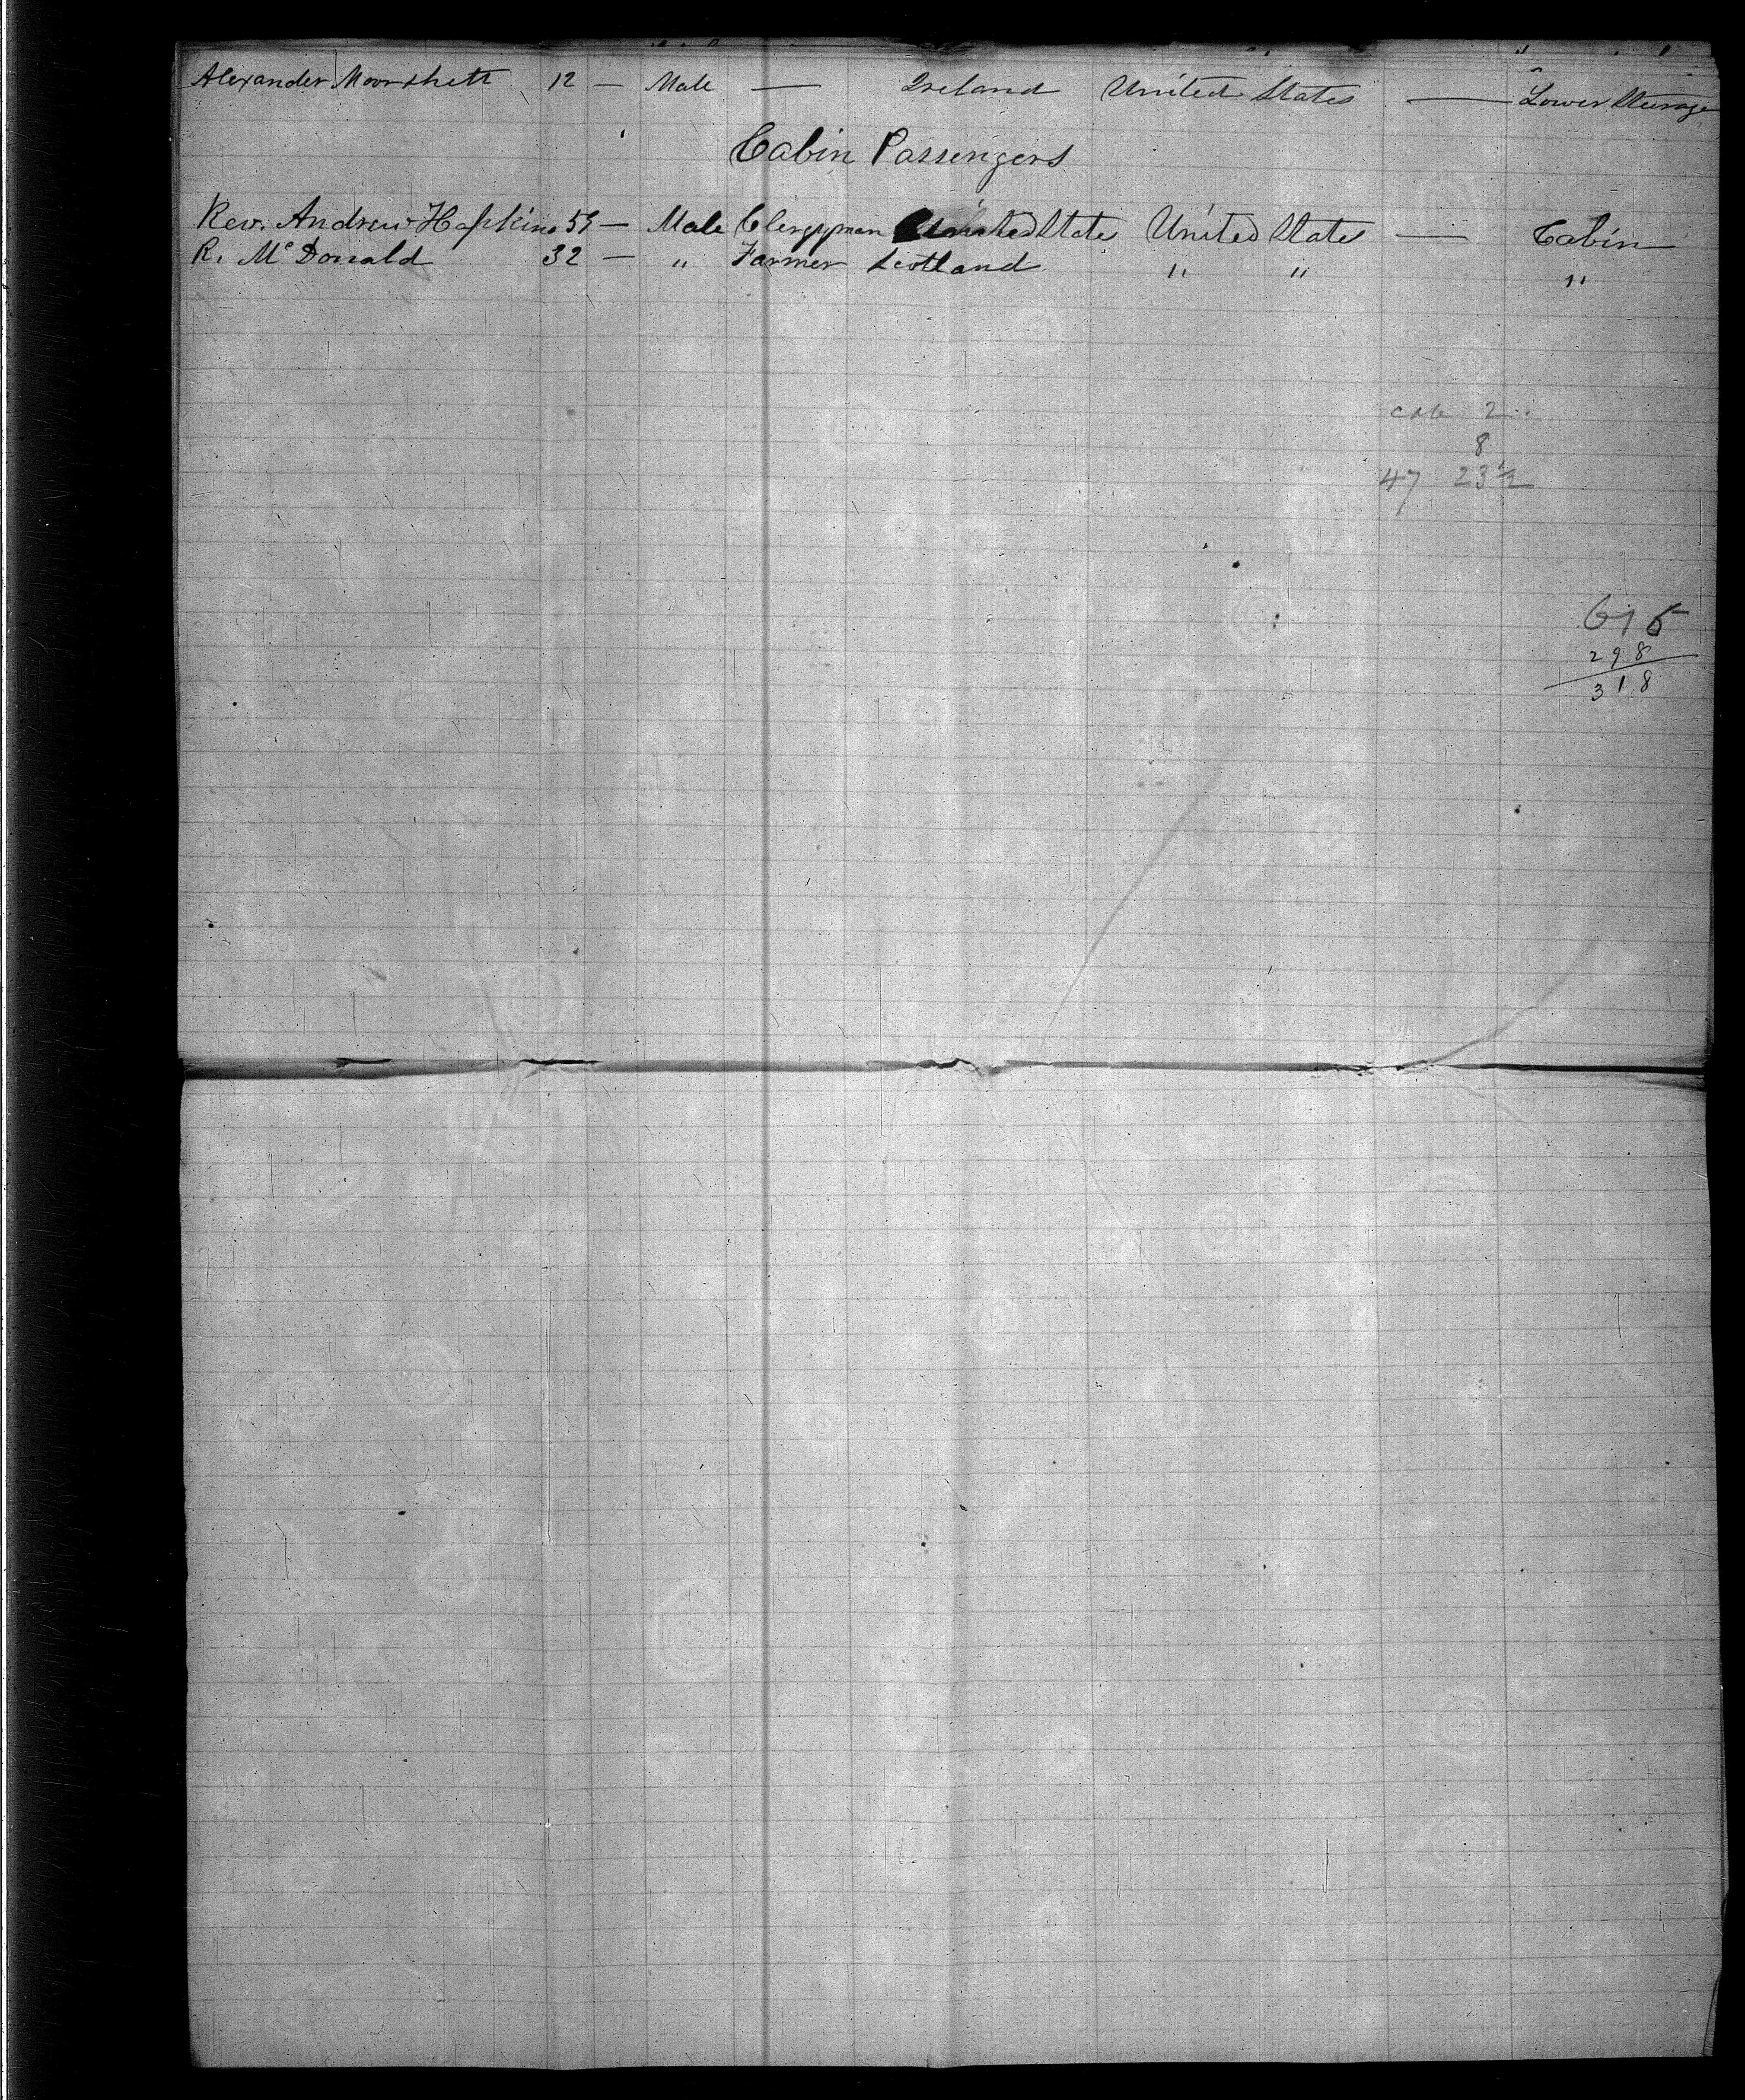 Alexander Moorshett 12 — Male — Ireland United States — Lower Steerage
Cabin Passengers
Rev. Andrew Hopkins — Male Clergyman United States United States — Cabin
R. McDonald 32 — " Farmer Scotland " " "
cab 2
8
47 23 1/2
616
298
318